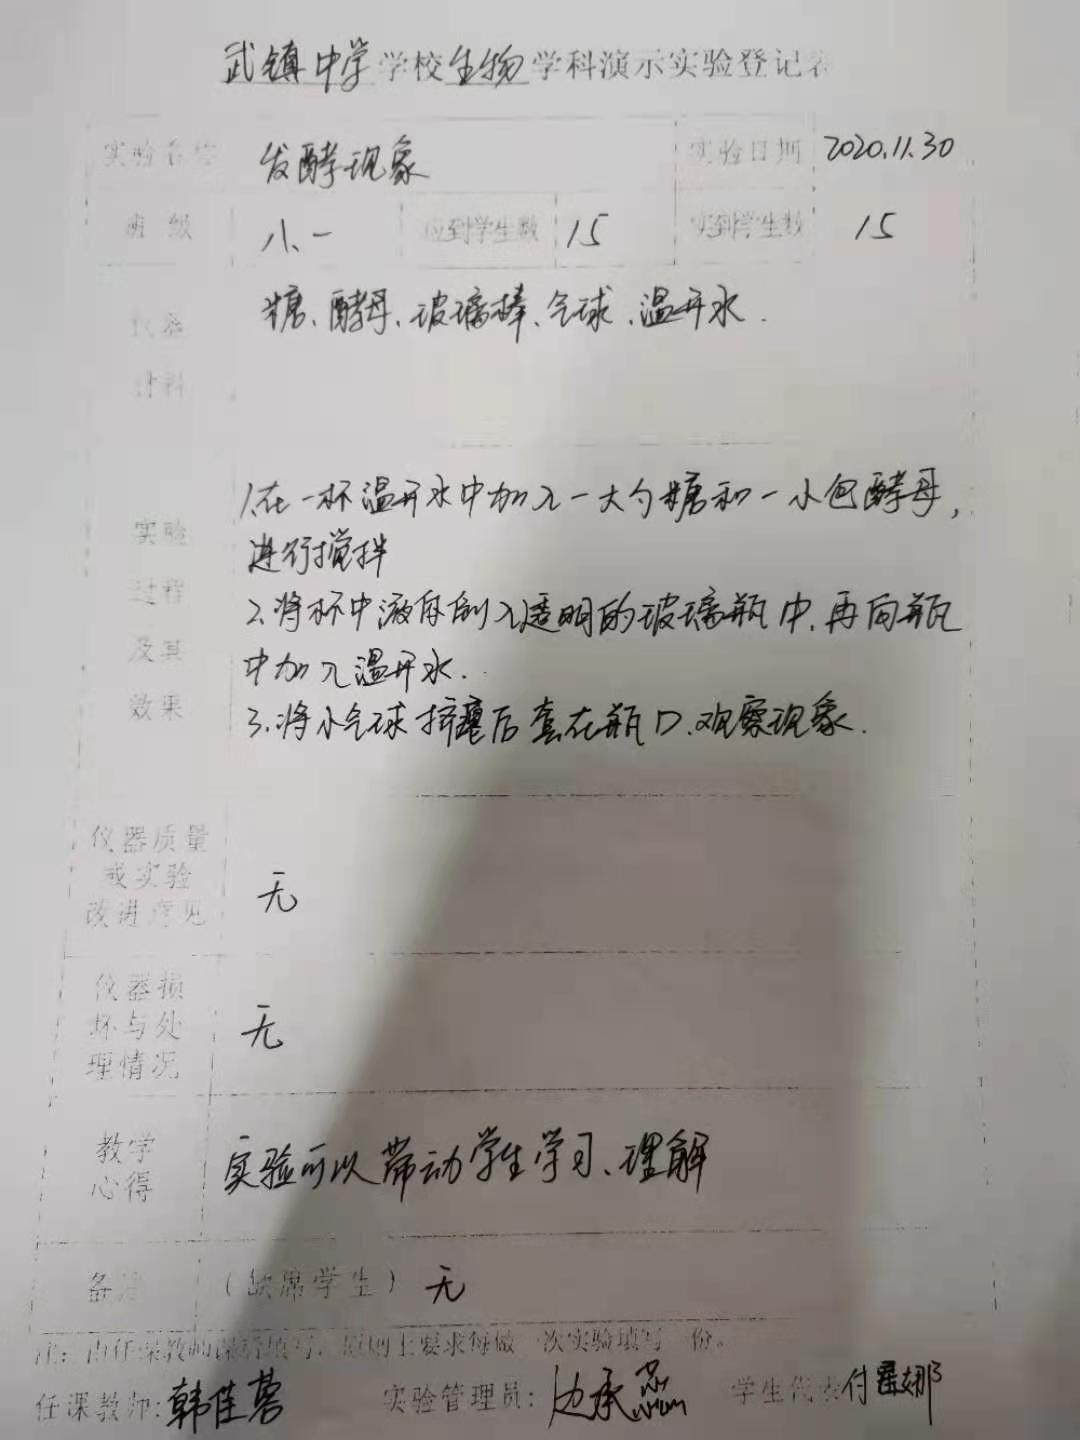 武镇中学学校生物学科演示实验登记表
实验名称 发酵现象 实验日期 2020.11.30
班级 八、一 应到学生数 15 实到学生数 15
仪器材料 糖、酵母、玻璃棒、气球、温开水.
实验过程及其效果
1.在一杯温开水中加入一大勺糖和一小包酵母,
进行搅拌
2.将杯中液体倒入透明的玻璃瓶中,再向瓶
中加入温开水.
3.将小气球挤瘪后套在瓶口.观察现象.
仪器质量
或实验
改进意见
无
仪器损
坏与处
理情况
无
教学
心得
实验可以带动学生学习、理解
备注 (缺席学生) 无
注:由任课教师课后填写,原则上要求每做一次实验填写一份。
任课教师:韩佳 实验管理员:边承蕊 学生代表付娜